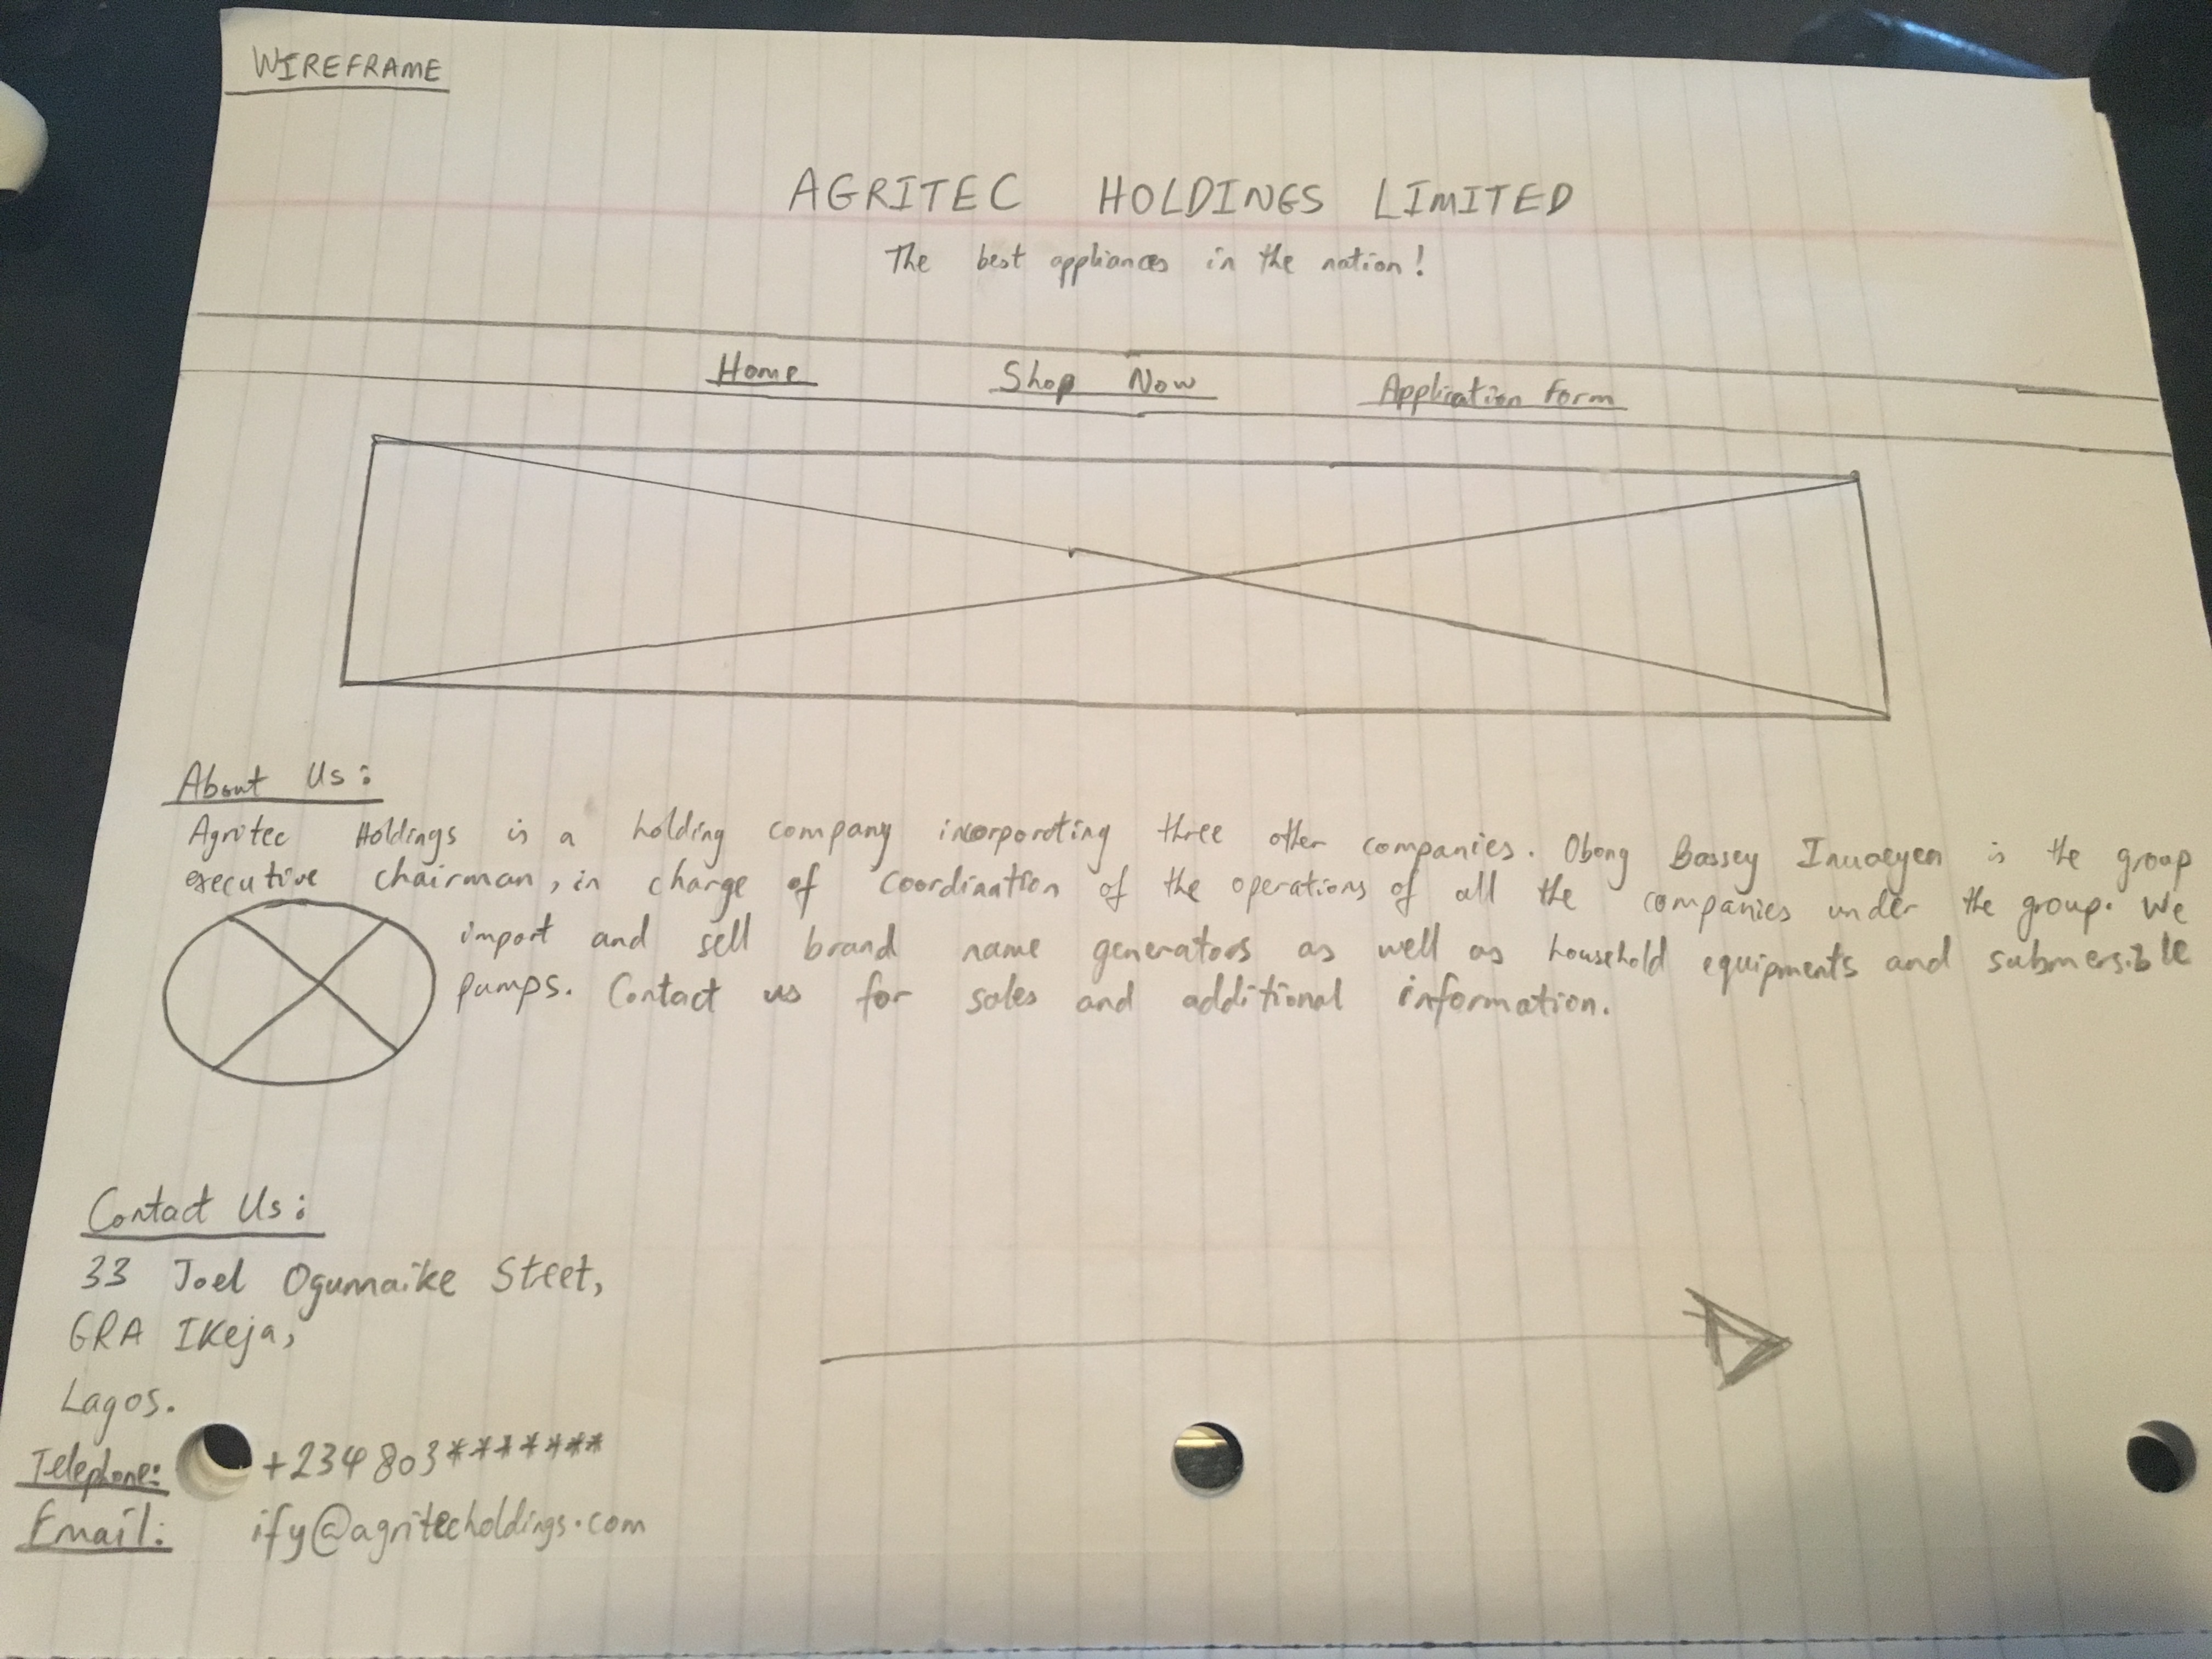 WIREFRAME
AGRITEC HOLDINGS LIMITED
The best appliances in the nation!
Home Shop Now Application Form
About Us:
Agritec Holdings is a holding company incorporating three other companies. Obong Bassey Inuaeyen is the group
executive chairman, in charge of coordination of the operations of all the companies under the group. We
import and sell brand name generators as well as household equipments and submersible
pumps. Contact us for sales and additional information.
Contact Us:
33 Joel Ogunnaike Steet,
GRA IKeja,
Lagos.
Telephone: +234 803*******
Email: ify@agritecholdings.com